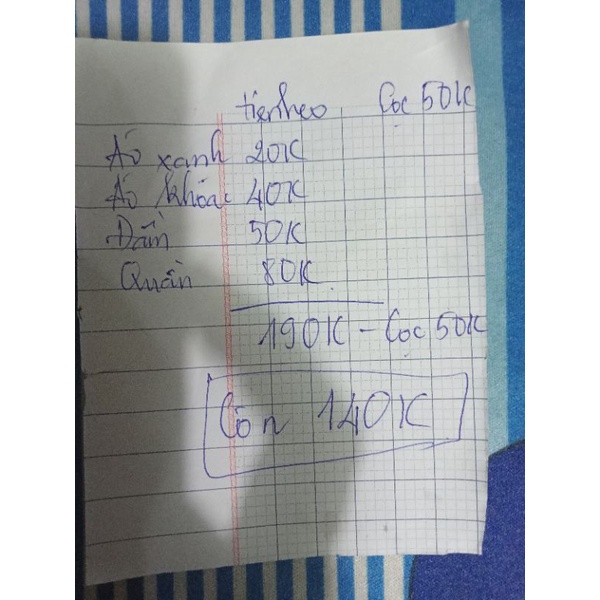 tienheo Cọc 50K
Áo xanh 20K
Áo khoác 40K
Đầm 50K
Quần 80K
190K - Cọc 50K
Còn 140K